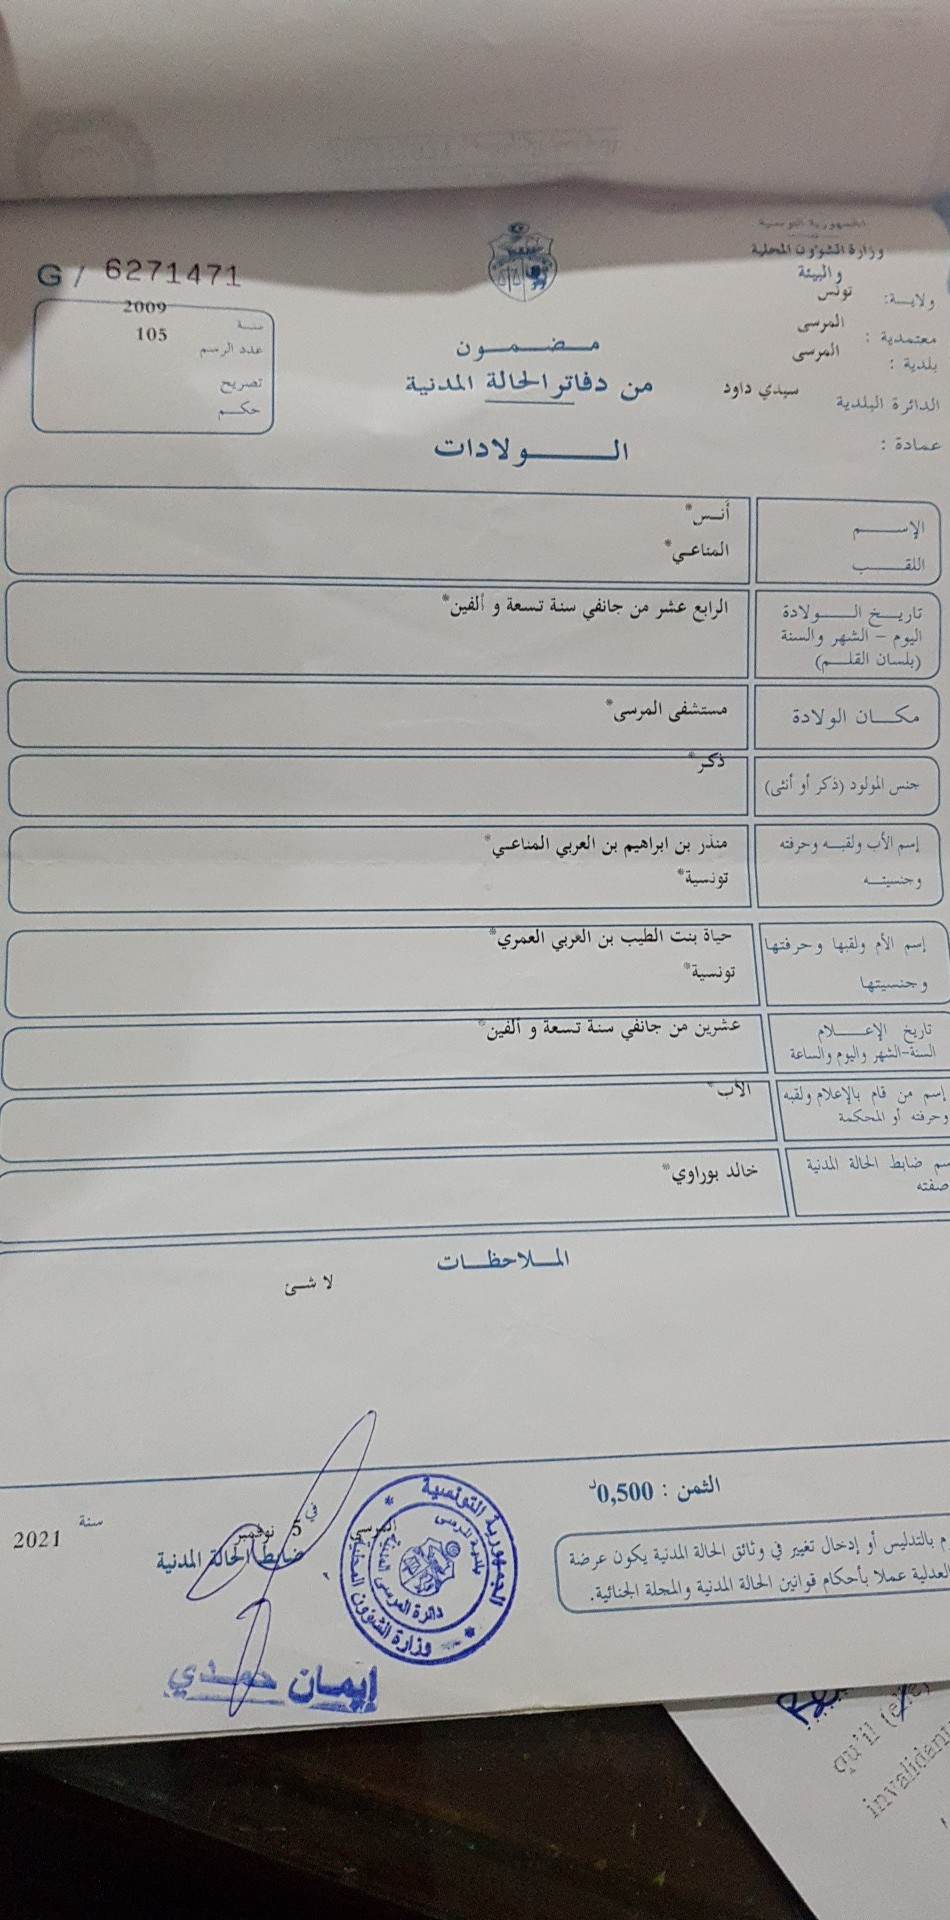 الجمهورية التونسية
وزارة الشؤون المحلية
والبيئة
ولاية: تونس
معتمدية : المرسى
بلدية : المرسى
الدائرة البلدية سيدي داود
عمادة :
G / 6271471
سنة 2009
عدد الرسم 105
تصريح
حكم
مضمون
من دفاتر الحالة المدنية
الولادات
الإسم أنس*
اللقب المناعي*
تاريخ الولادة الرابع عشر من جانفي سنة تسعة و ألفين*
اليوم - الشهر والسنة
(بلسان القلم)
مكان الولادة مستشفى المرسى*
جنس المولود (ذكر أو أنثى) ذكر*
إسم الأب ولقبه وحرفته منذر بن ابراهيم بن العربي المناعي*
وجنسيته تونسية*
إسم الأم ولقبها وحرفتها حياة بنت الطيب بن العربي العمري*
وجنسيتها تونسية*
تاريخ الإعلام عشرين من جانفي سنة تسعة و ألفين*
السنة-الشهر واليوم والساعة
إسم من قام بالإعلام ولقبه الأب*
وحرفته أو المحكمة
سم ضابط الحالة المدنية خالد بوراوي*
صفته
الملاحظات
لا شئ
الثمن : 0,500د
م بالتدليس أو إدخال تغيير في وثائق الحالة المدنية يكون عرضة
العدلية عملا بأحكام قوانين الحالة المدنية والمجلة الجنائية.
المرسى في 5 نوفمبر سنة 2021
ضابط الحالة المدنية
الجمهورية التونسية
وزارة الشؤون المحلية
بلدية المرسى
إيمان حمدي
qu'il (elle)
invalidant